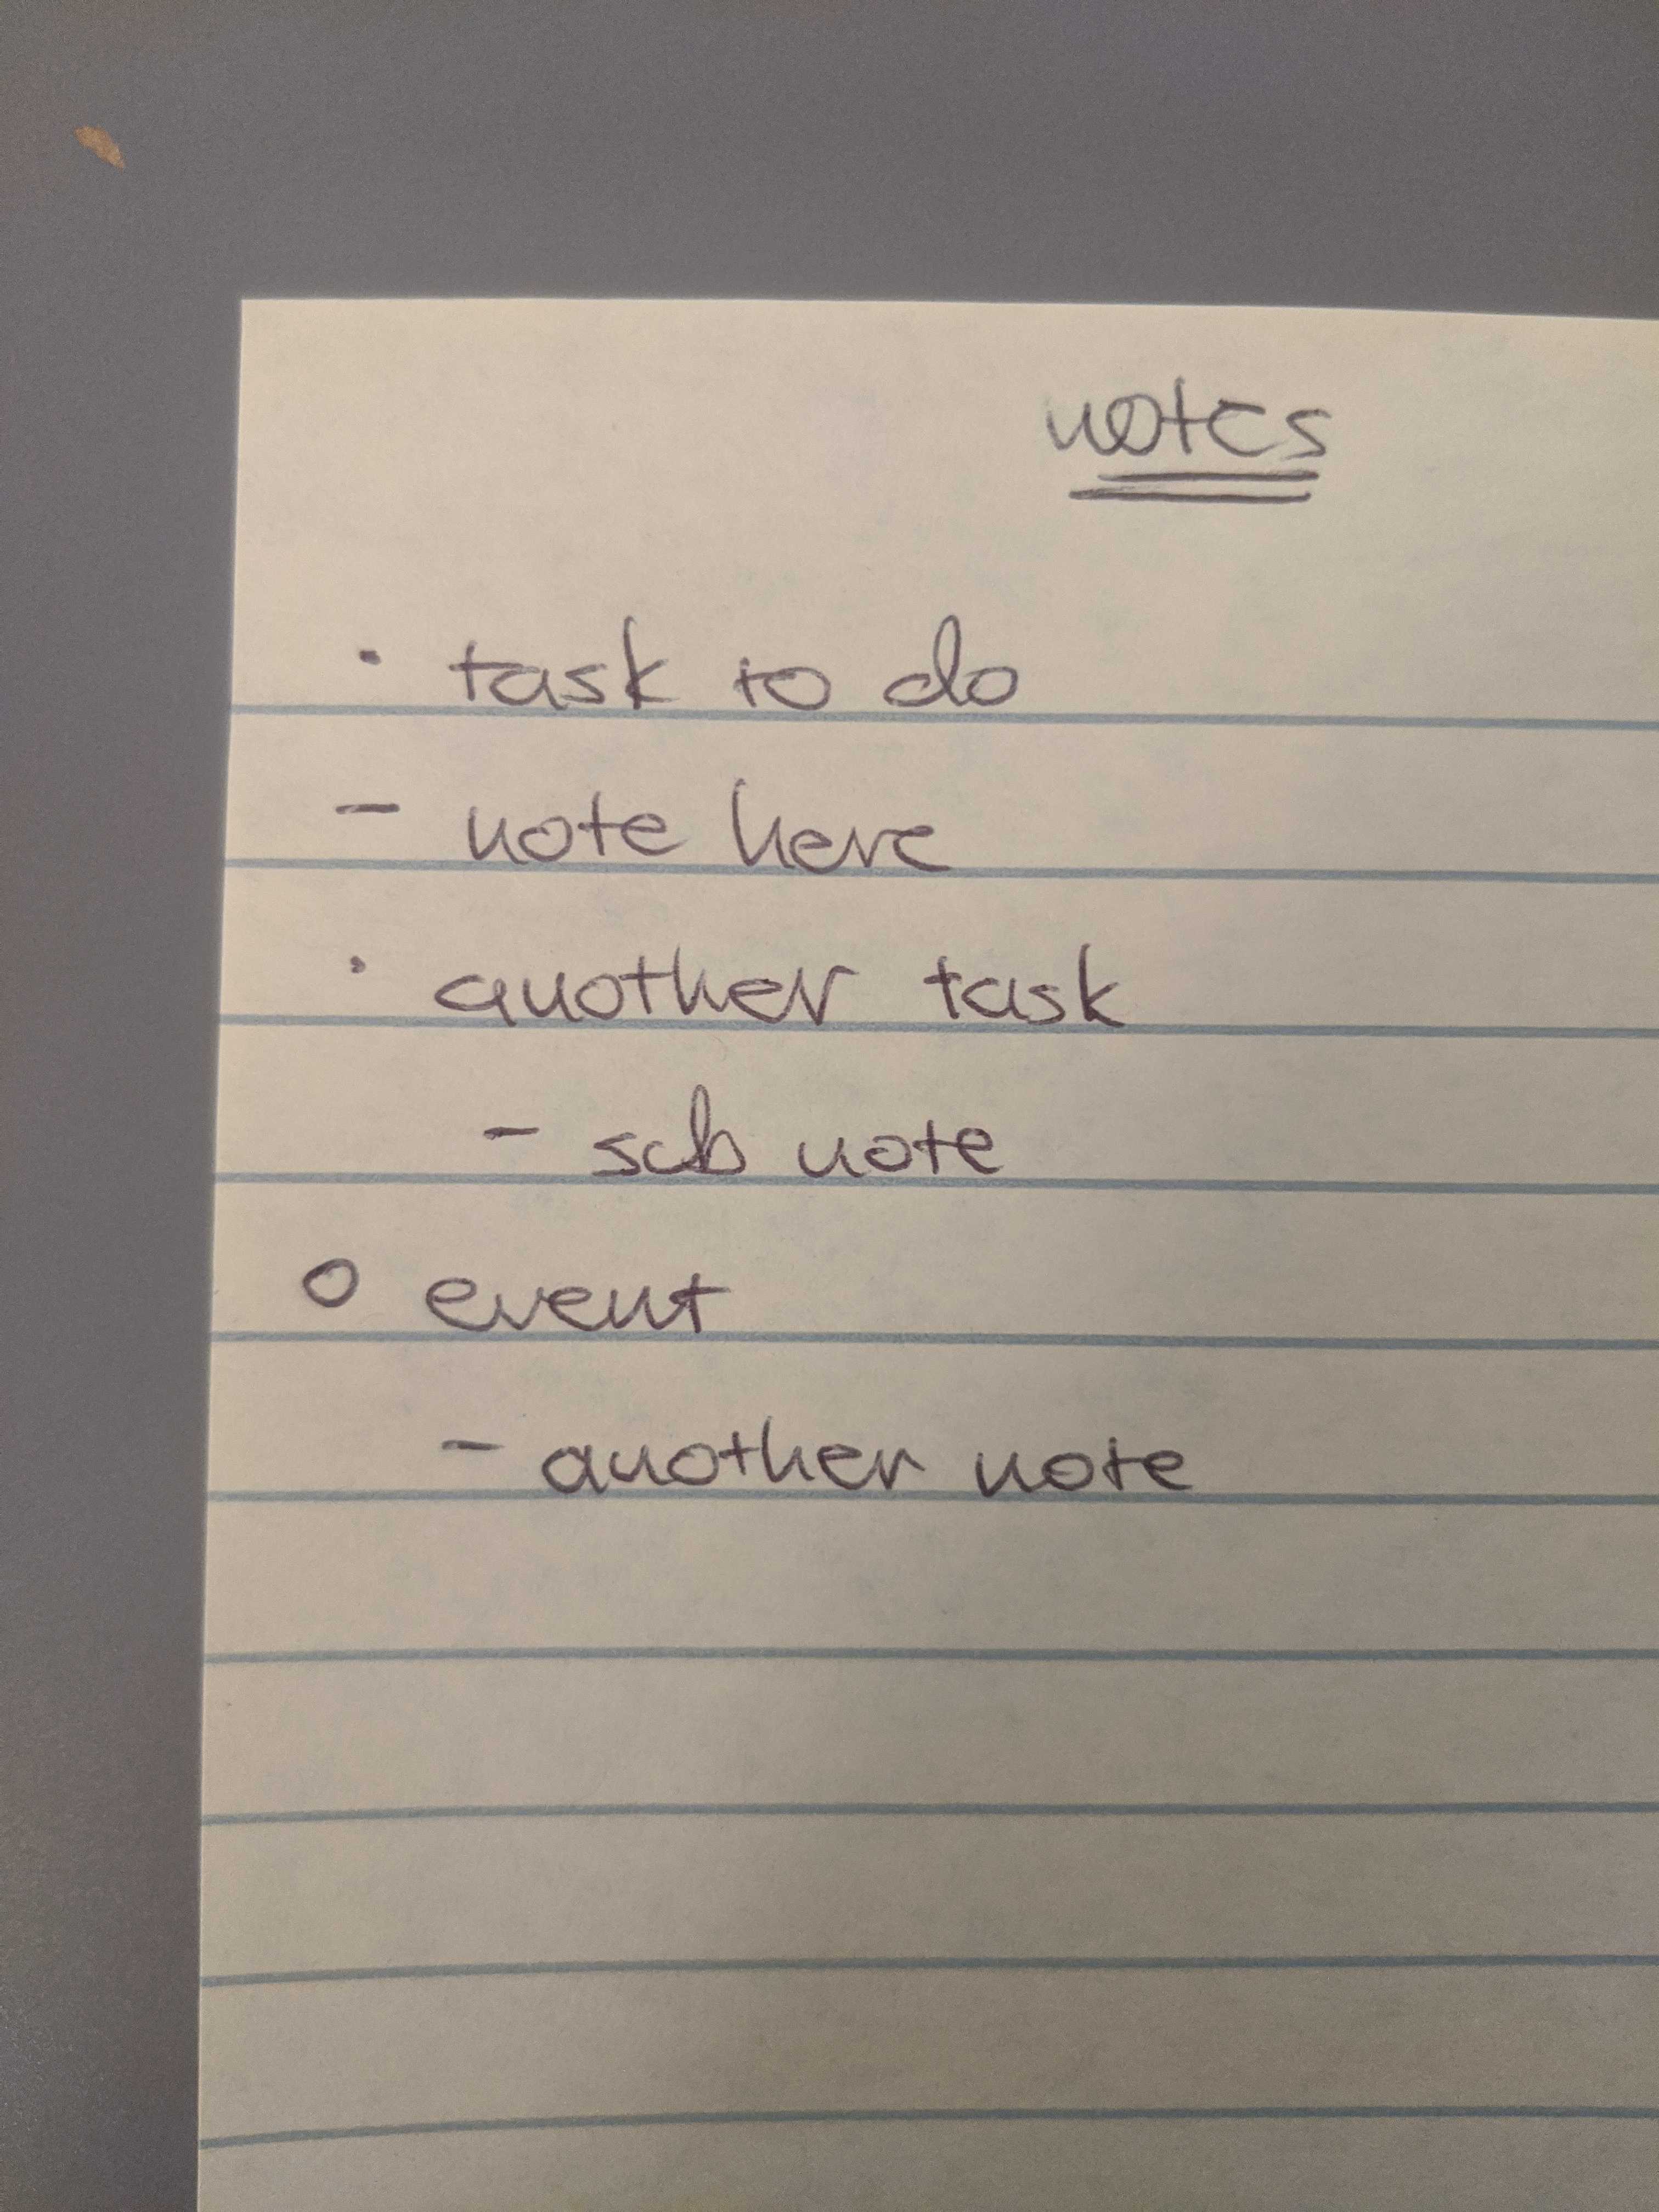 notes
· task to do
- note here
· another task
- sub note
o event
- another note